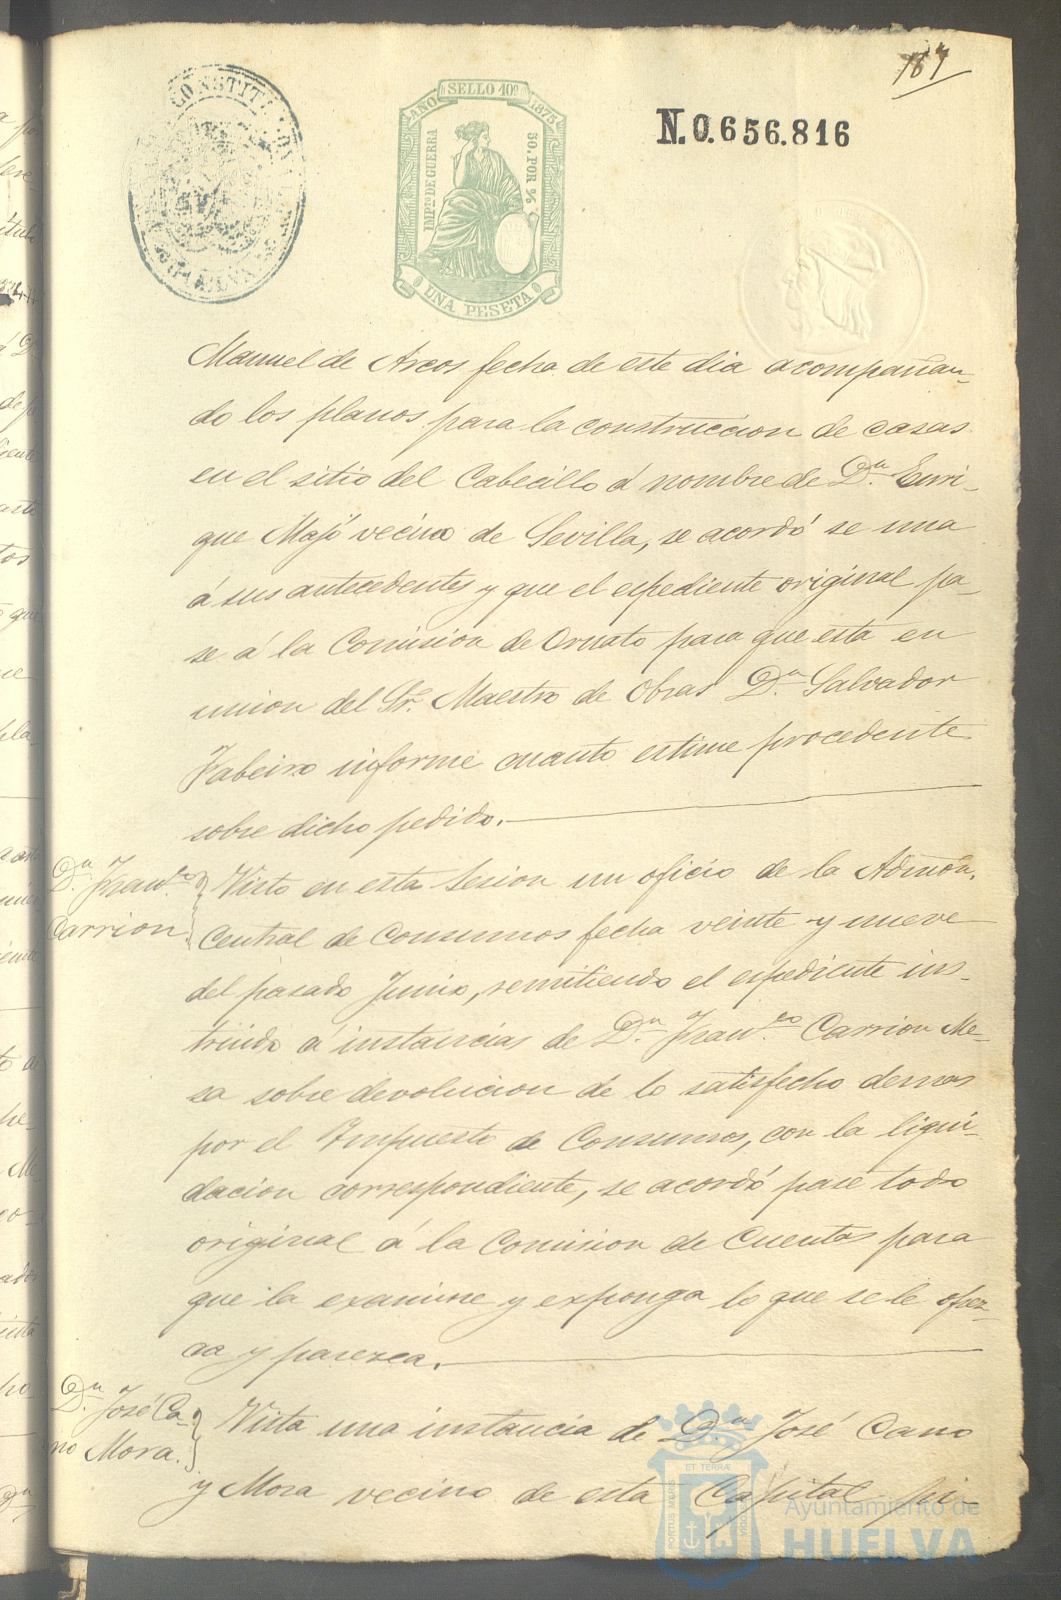 187
AÑO SELLO 10º 1875
IMPTO DE GUERRA
50. POR %
UNA PESETA
N. 0.656.816
Manuel de Arcos fecha de este dia acompañan-
do los planos para la construccion de casas
en el sitio del Cabecillo á nombre de D.n Enri-
que Majó vecino de Sevilla, se acordó se una
á sus antecedentes y que el espediente original pa-
se á la Comision de Ornato para que esta en
union del Sr. Maestro de Obras D.n Salvador
Fabeiro informe cuanto estime procedente
sobre dicho pedido.
D.n Fran.co
Carrion
Visto en esta Sesion un oficio de la Admón.
Central de Consumos fecha veinte y nueve
del pasado Junio, remitiendo el espediente ins-
truido á instancias de D.n Fran.co Carrion Me-
sa sobre devolucion de lo satisfecho demas
por el Impuesto de Consumos, con la liqui-
dacion correspondiente, se acordó pase todo
original á la Comision de Cuentas para
que la examine y esponga lo que se le ofrez-
ca y parezca.
D.n José Ca-
no Mora.
Vista una instancia de D.n José Cano
y Mora vecino de esta Capital pi-
PORTUS MARIS ET TERRÆ
Ayuntamiento de
HUELVA